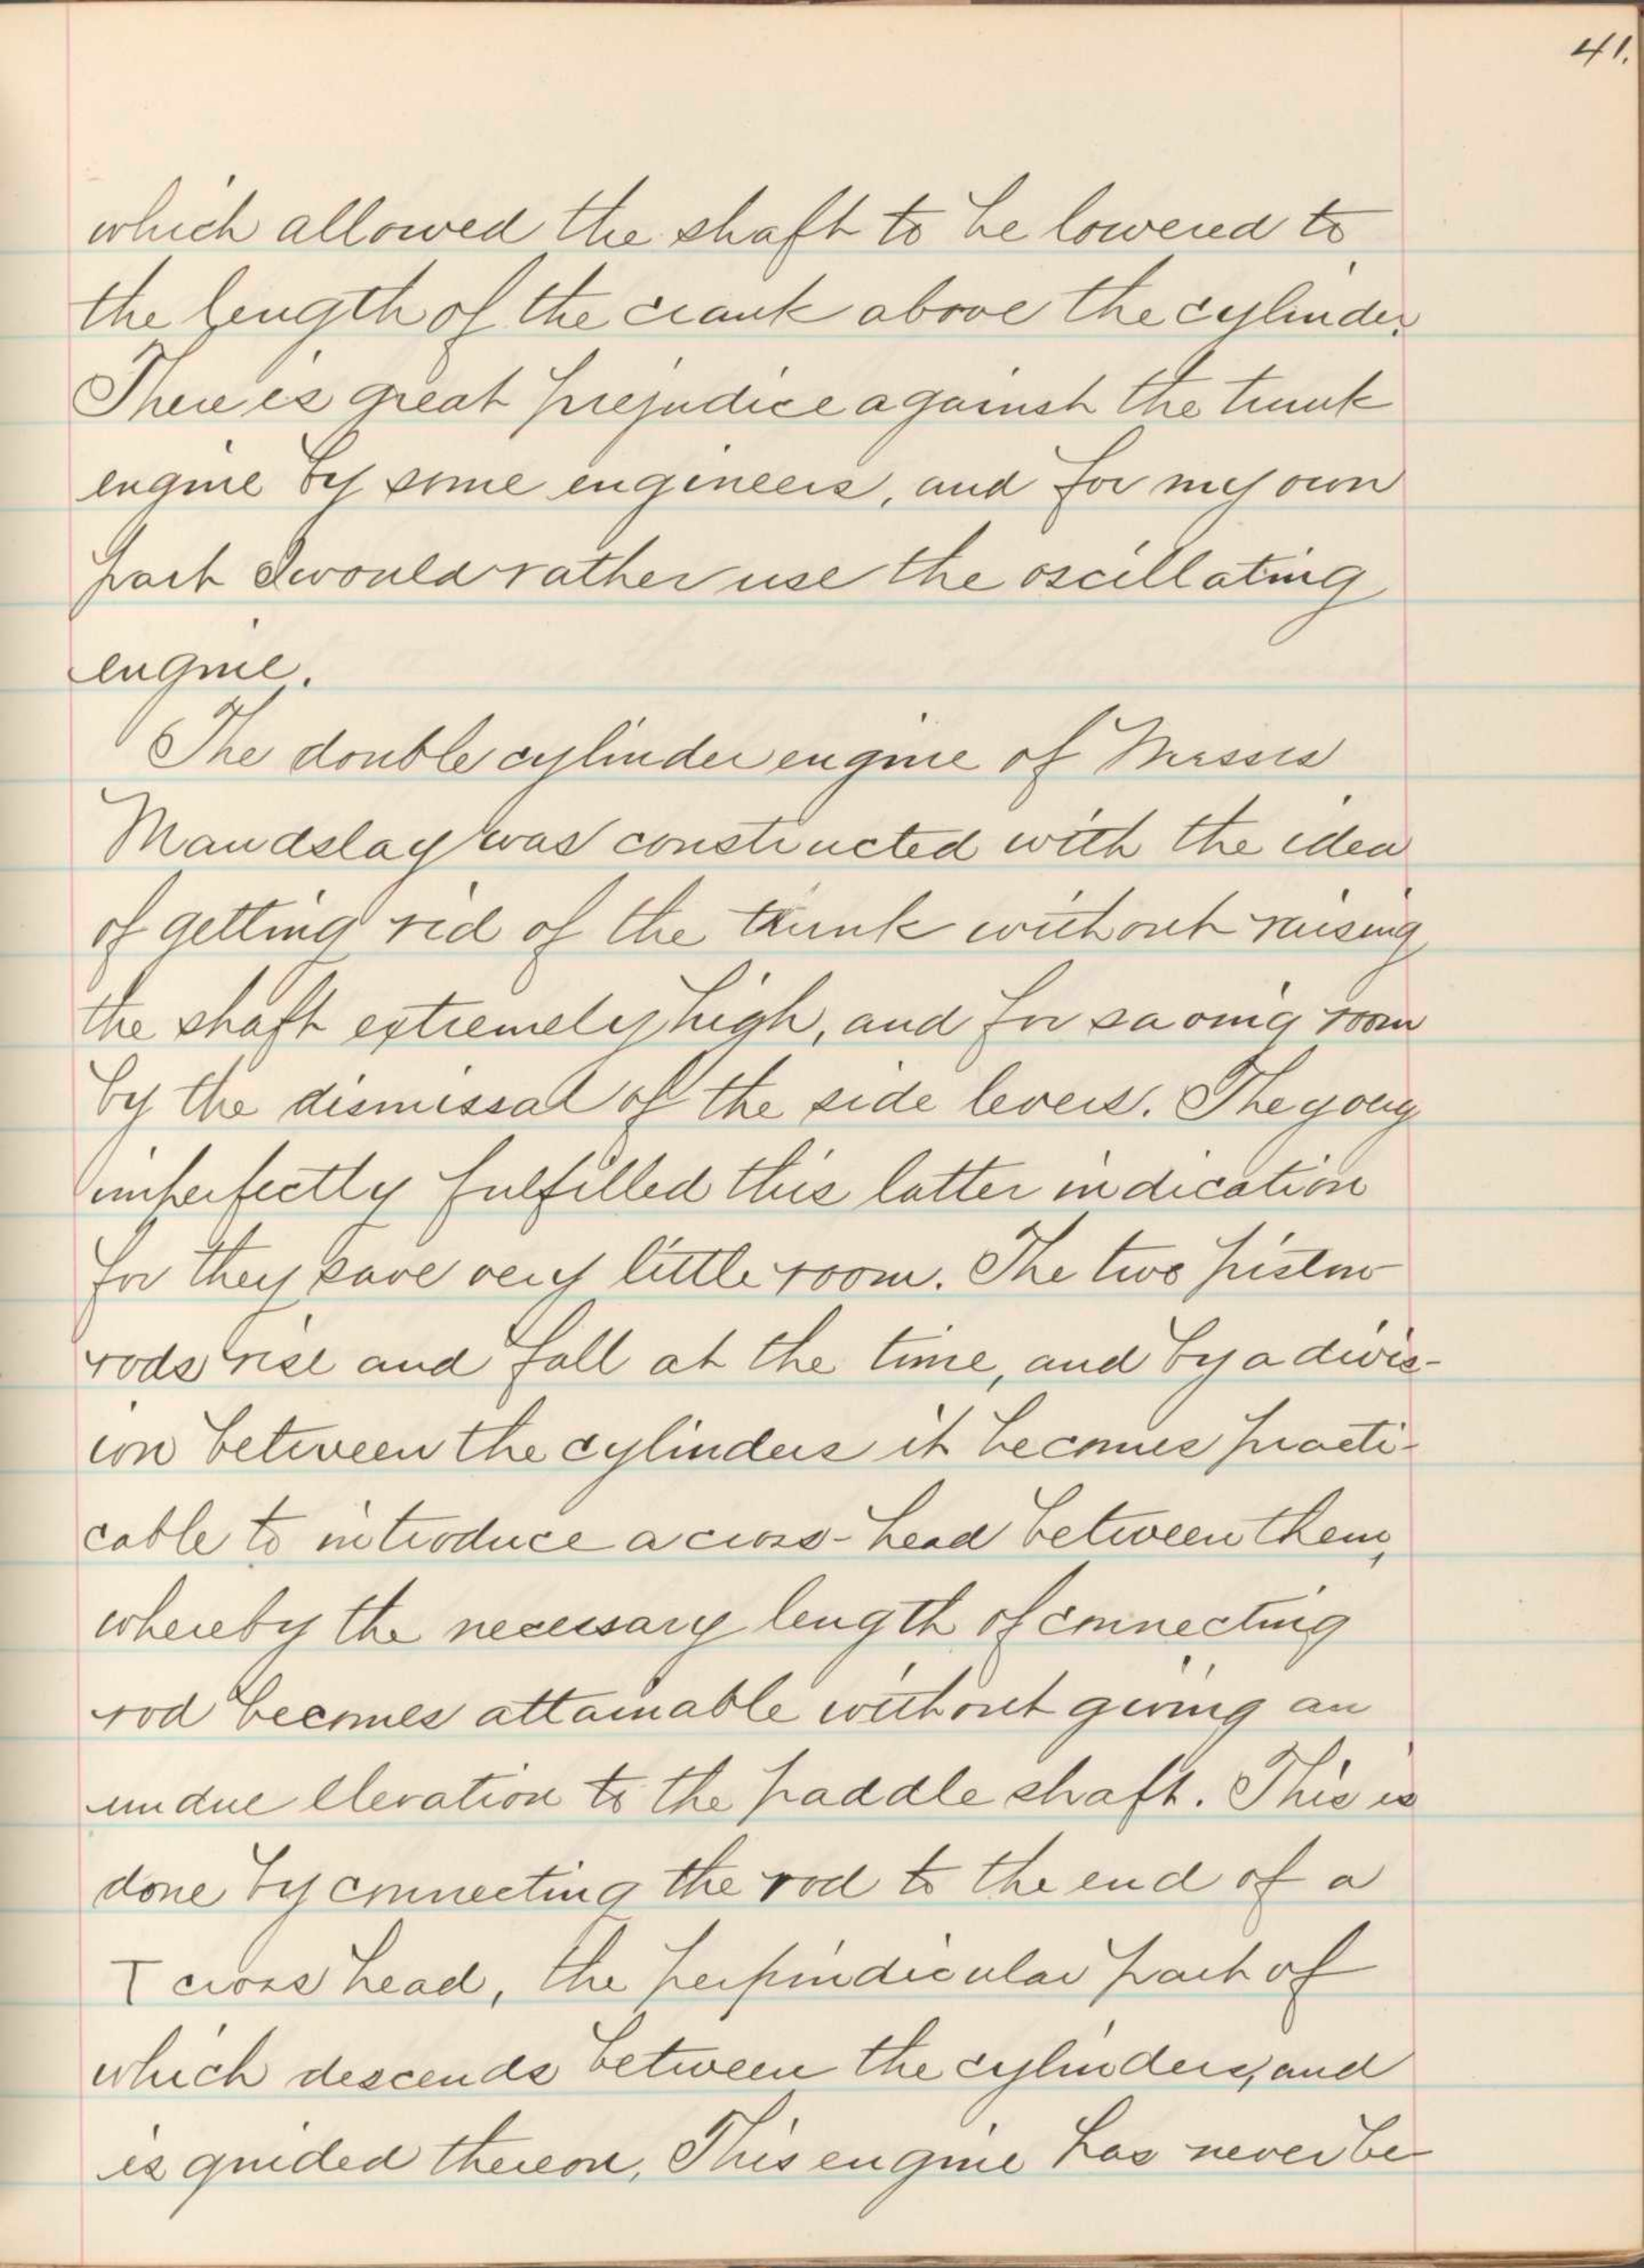 41.
which allowed the shaft to be lowered to
the length of the crank above the cylinder.
There is great prejudice against the trunk
engine by some engineers, and for my own
part I would rather use the oscillating
engine.
The double cylinder engine of Messrs
Maudslay was constructed with the idea
of getting rid of the trunk without raising
the shaft extremely high, and for saving room
by the dismissal of the side levers. The
imperfectly fulfilled this latter indication
for they save very little room. The two piston
rods rise and fall at the time, and by a divis-
ion between the cylinders it becomes practi-
cable to introduce a cross-head between them,
whereby the necessary length of connecting
rod becomes attainable without giving an
undue elevation to the paddle shaft. This is
done by connecting the rod to the end of a
T cross head, the perpindicular part of
which descends between the cylinders, and
is guided thereon, This engine has never be